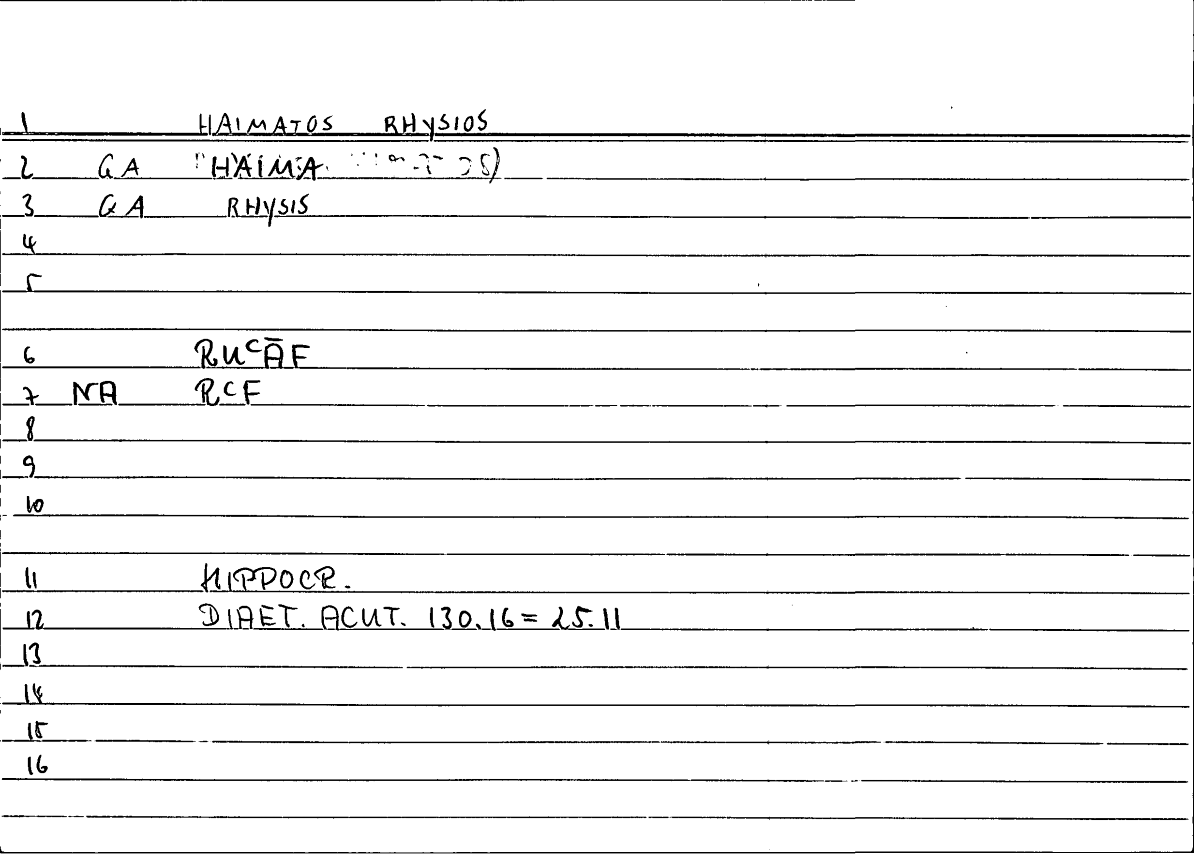 1 HAIMATOS RHYSIOS
2 GA HAIMA
3 GA RHYSIS
4
5
6 RUᶜĀF
7 NA RᶜF
8
9
10
11 HIPPOCR.
12 DIAET. ACUT. 130.16 = 25.11
13
14
15
16